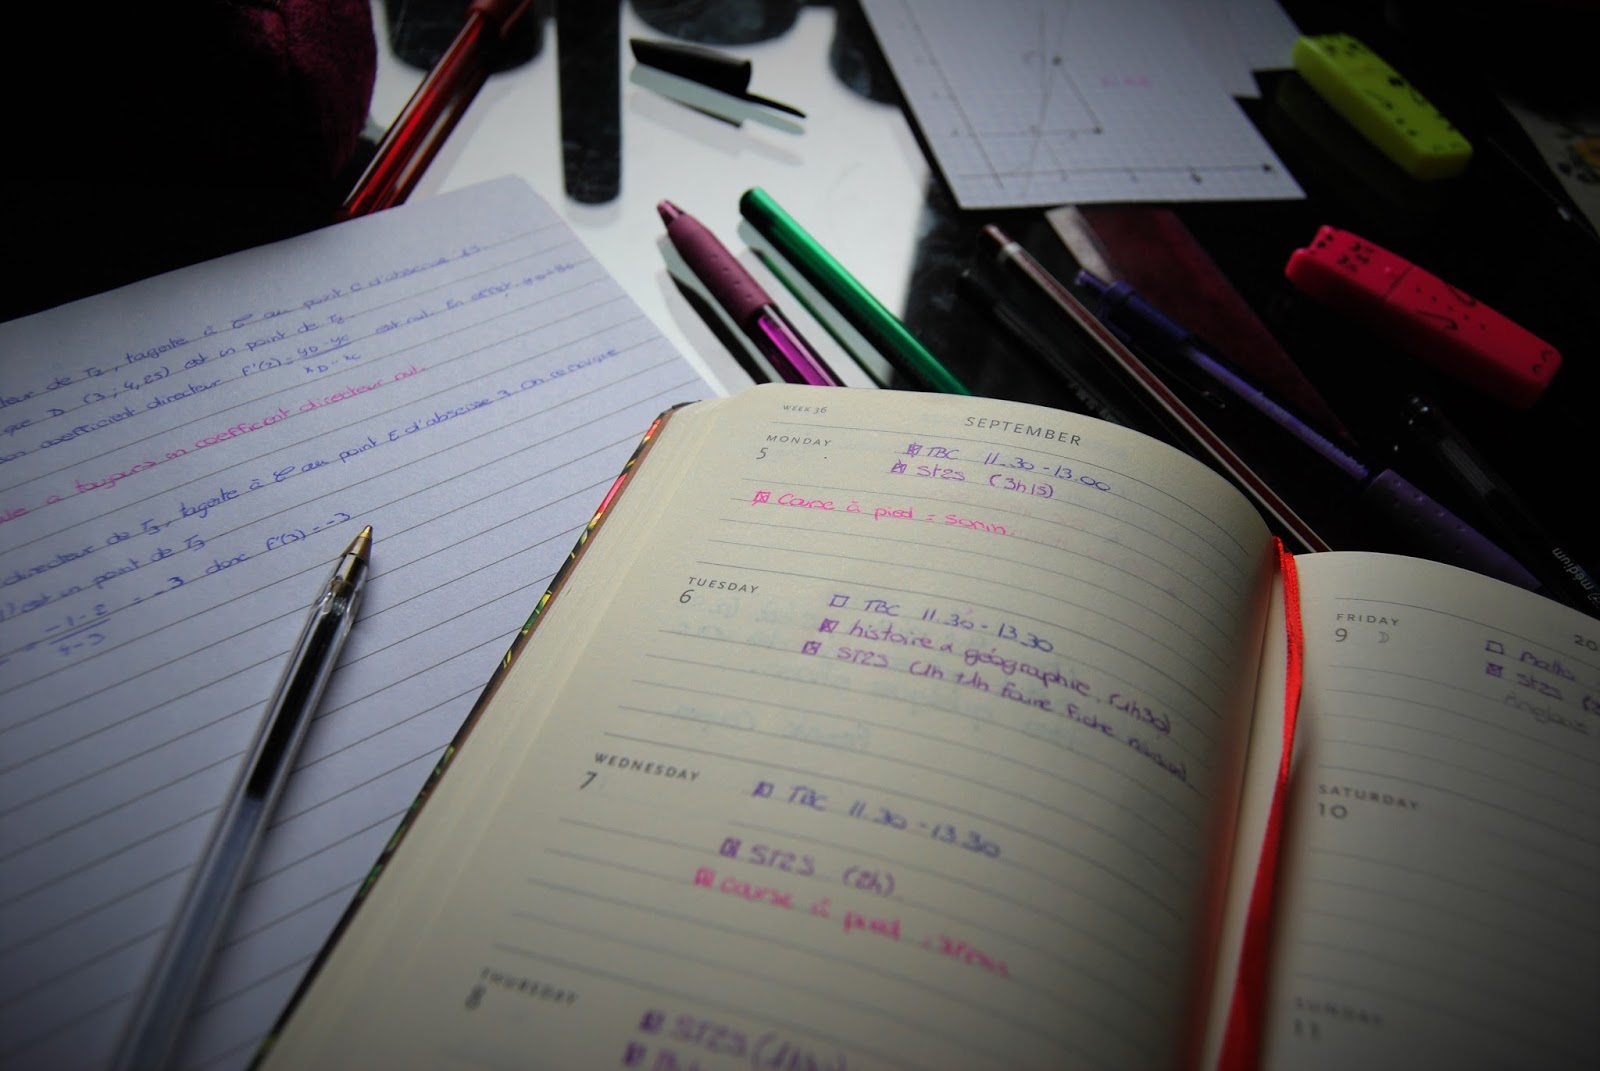 teur de T2, tangente à C au point C d'abscisse 2,5.
que D (3 ; 4,25) est un point de T2.
son coefficient directeur F'(2) = yD - yC / xD - xC est nul. En effet,
a toujours un coefficient directeur nul.
directeur de T3, tangente à C au point E d'abscisse 3. On remarque
est un point de T3
= -1-2 / 4-3 = -3 donc F'(3) = -3
WEEK 36
SEPTEMBER
MONDAY
5
TBC 11.30 - 13.00
ST2S (3h15)
Course à pied = 50min.
TUESDAY
6
TBC 11.30 - 13.30
histoire & géographie. (1h30)
ST2S (1h + 1h Faire Fiche
WEDNESDAY
7
TBC 11.30 - 13.30
ST2S (2h).
Course à pied
THURSDAY
8
ST2S
FRIDAY
9
20
Maths
ST2S
Anglais
SATURDAY
10
SUNDAY
11
medium